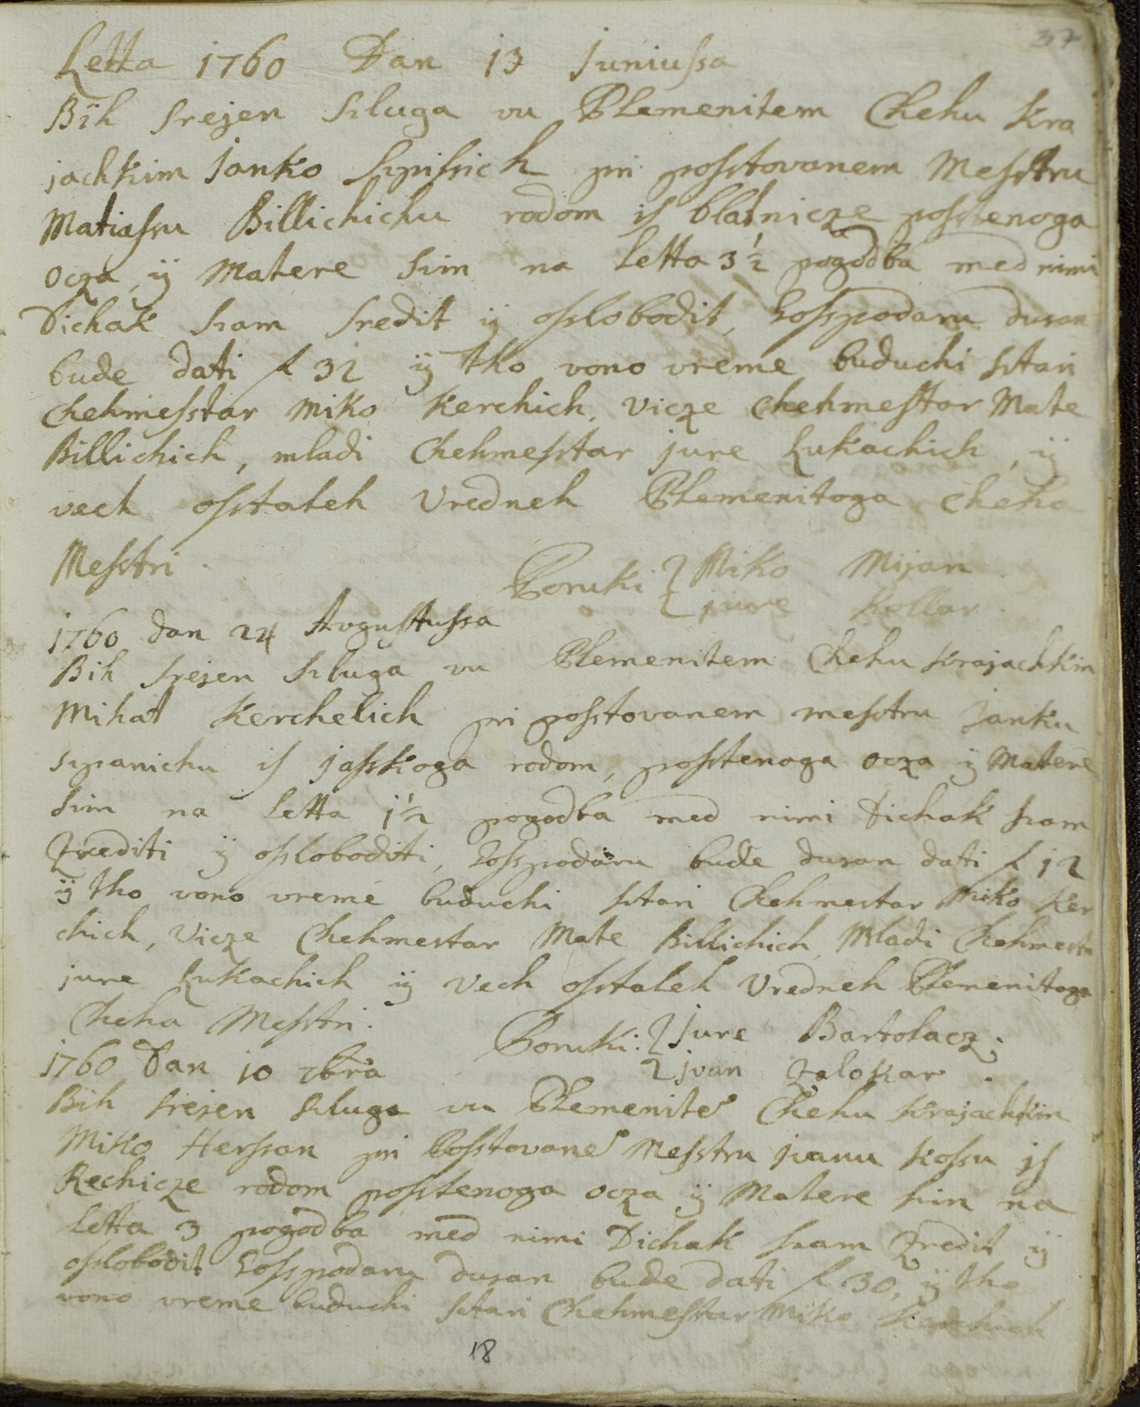 37
Letta 1760 Dan 13 Juniuſsa
Bih ſrejen ſzluga vu Plemenitem Chehu Kra
jachkim Janko Szpiſsich pri poſstovanem Meſstru
Matiaſsu Billichichu rodom iſ blatnicze poſstenoga
Ocza, ÿ Matere ſzim na Letta 3½ pogodba med nimi
Dichak ſzam ſredit ÿ oſzlobodit, Goſzpodaru dusan
bude dati f 32 ÿ tho vono vreme buduchi ſztari
Chehmeſstar Miko Kerchich, Vicze Chehmeſtar Mate
Billichich, mladi Chehmeſstar jure Lukachich, ÿ
vech oſztaleh Vredneh Plemenitoga Cheha
Meſstri. Poruki Miko Mijan
jure Kollar
1760 dan 24 Avguſtuſsa
Bih ſrejen ſzluga vu Plemenitem Chehu Krajachkim
Mihal Kerchelich pri poſstovanem meſstru Janku
Szpanichu iſ jaſskoga rodom, poſstenoga Ocza ÿ Matere
ſzim na Letta 1½ pogodba med nimi Dichak ſzam
zrediti ÿ oſzloboditi, Goſzpodaru bude dusan dati f 12
ÿ tho vono vreme buduchi ſztari Chehmestar Miko Ker
chich, Vicze Chehmestar Mate Billichich, Mladi Chehmestar
jure Lukachich ÿ Vech oſztaleh Vredneh Plemenitoga
Cheha Meſstri. Poruki: jure Bartolacz;
jvan Zalokar
1760 Dan 10 7bra
Bih ſrejen ſzluga vu Plemenite Chehu Krajachkim
Miko Herſsan pri Poſstovane Meſstru jvanu Koſsu iſ
Rechicze rodom poſstenoga ocza ÿ Matere ſzin na
Letta 3 pogodba med nimi Dichak ſzam zredit ÿ
oſzlobodit Goſzpodaru dusan bude dati f 30, ÿ tho
vono vreme buduchi ſztari Chehmeſtar Miko Kerchich
18